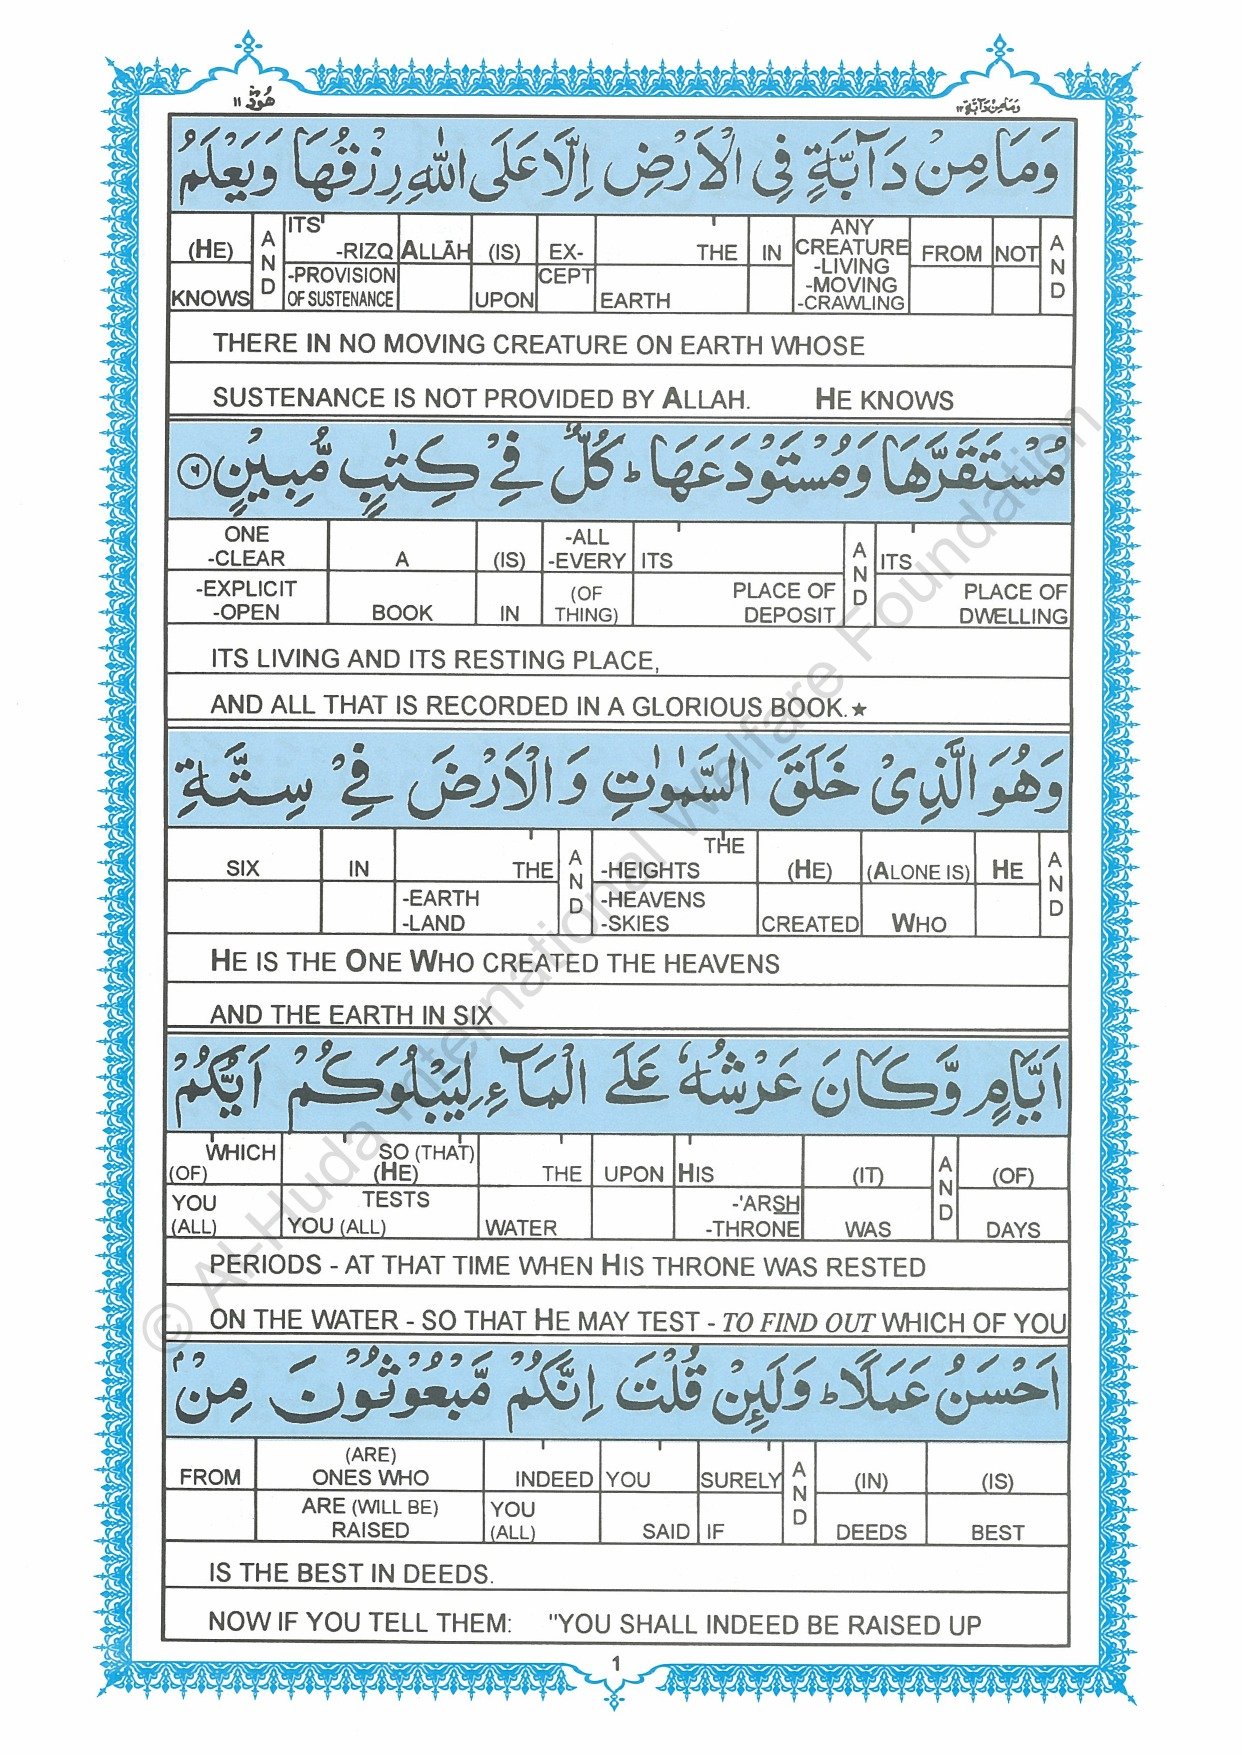 وَمَا مِنْ دَآبَّةٍ ١٢
هُوْد ١١
وَمَا مِنْ دَآبَّةٍ فِي الْاَرْضِ اِلَّا عَلَى اللّٰهِ رِزْقُهَا وَيَعْلَمُ
AND NOT FROM ANY CREATURE -LIVING -MOVING -CRAWLING IN THE EARTH EXCEPT (IS) UPON ALLĀH ITS -RIZQ -PROVISION OF SUSTENANCE AND (HE) KNOWS
THERE IN NO MOVING CREATURE ON EARTH WHOSE
SUSTENANCE IS NOT PROVIDED BY ALLAH. HE KNOWS
مُسْتَقَرَّهَا وَمُسْتَوْدَعَهَا ؕ كُلٌّ فِيْ كِتٰبٍ مُّبِيْنٍ ٦
ITS PLACE OF DWELLING AND ITS PLACE OF DEPOSIT -ALL -EVERY (OF THING) (IS) IN A BOOK ONE -CLEAR -EXPLICIT -OPEN
ITS LIVING AND ITS RESTING PLACE,
AND ALL THAT IS RECORDED IN A GLORIOUS BOOK.★
وَهُوَ الَّذِيْ خَلَقَ السَّمٰوٰتِ وَالْاَرْضَ فِيْ سِتَّةِ
AND HE (ALONE IS) WHO (HE) CREATED THE -HEIGHTS -HEAVENS -SKIES AND THE -EARTH -LAND IN SIX
HE IS THE ONE WHO CREATED THE HEAVENS
AND THE EARTH IN SIX
اَيَّامٍ وَّكَانَ عَرْشُهٗ عَلَى الْمَآءِ لِيَبْلُوَكُمْ اَيُّكُمْ
(OF) DAYS AND (IT) WAS HIS -'ARSH -THRONE UPON THE WATER SO (THAT) (HE) TESTS YOU (ALL) WHICH (OF) YOU (ALL)
PERIODS - AT THAT TIME WHEN HIS THRONE WAS RESTED
ON THE WATER - SO THAT HE MAY TEST - TO FIND OUT WHICH OF YOU
اَحْسَنُ عَمَلًا ؕ وَلَئِنْ قُلْتَ اِنَّكُمْ مَّبْعُوْثُوْنَ مِنْۢ
(IS) BEST (IN) DEEDS AND SURELY IF YOU SAID INDEED YOU (ALL) (ARE) ONES WHO ARE (WILL BE) RAISED FROM
IS THE BEST IN DEEDS.
NOW IF YOU TELL THEM: "YOU SHALL INDEED BE RAISED UP
1
© Al-Huda International Welfare Foundation